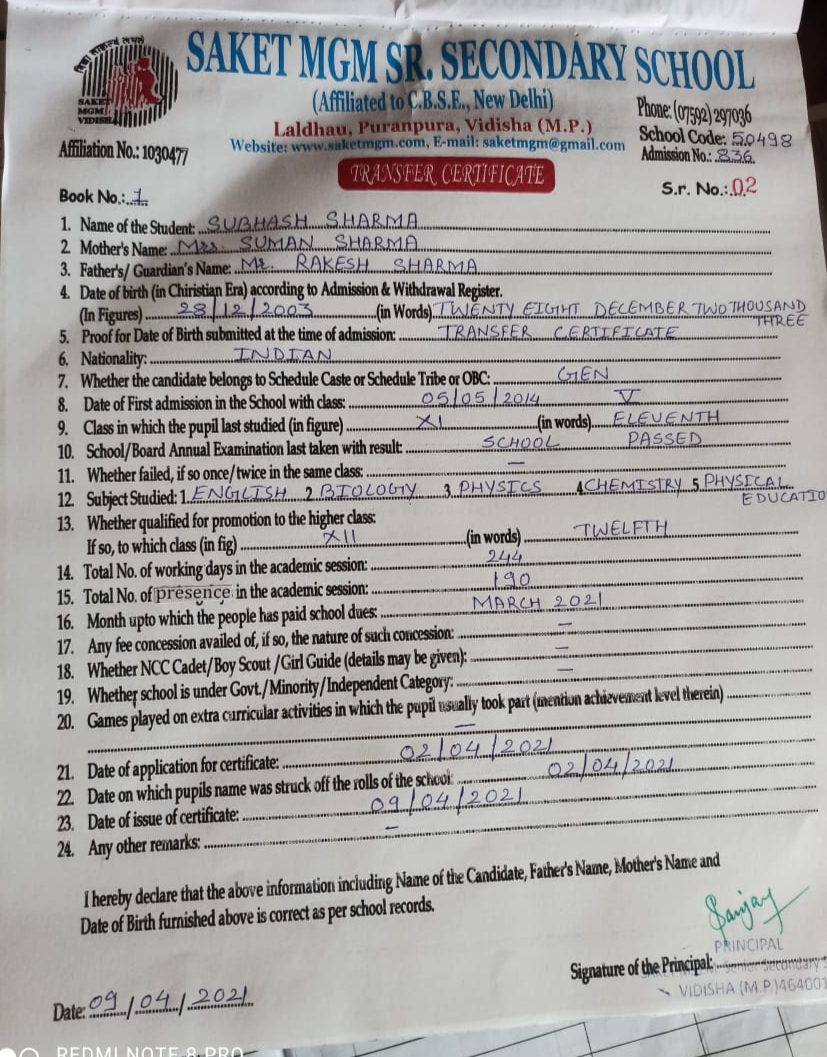 SAKET MGM VIDISHA
SAKET MGM SR. SECONDARY SCHOOL
(Affiliated to C.B.S.E., New Delhi)
Laldhau, Puranpura, Vidisha (M.P.)
Website: www.saketmgm.com, E-mail: saketmgm@gmail.com
Phone: (07592) 297036
School Code: 50498
Admission No.: 836
Affiliation No.: 1030477
TRANSFER CERTIFICATE
Book No.: 1
S.r. No.: 02
1. Name of the Student: SUBHASH SHARMA
2. Mother's Name: Mrs. SUMAN SHARMA
3. Father's/ Guardian's Name: Mr. RAKESH SHARMA
4. Date of birth (in Chiristian Era) according to Admission & Withdrawal Register.
(In Figures) 28/12/2003 (in Words) TWENTY EIGHT DECEMBER TWO THOUSAND THREE
5. Proof for Date of Birth submitted at the time of admission: TRANSFER CERTIFICATE
6. Nationality: INDIAN
7. Whether the candidate belongs to Schedule Caste or Schedule Tribe or OBC: GEN
8. Date of First admission in the School with class: 05/05/2014 V
9. Class in which the pupil last studied (in figure) XI (in words) ELEVENTH
10. School/Board Annual Examination last taken with result: SCHOOL PASSED
11. Whether failed, if so once/twice in the same class: —
12. Subject Studied: 1. ENGLISH 2 BIOLOGY 3 PHYSICS 4 CHEMISTRY 5 PHYSICAL EDUCATIO
13. Whether qualified for promotion to the higher class:
If so, to which class (in fig) XII (in words) TWELFTH
14. Total No. of working days in the academic session: 244
15. Total No. of presence in the academic session: 190
16. Month upto which the people has paid school dues: MARCH 2021
17. Any fee concession availed of, if so, the nature of such concession: —
18. Whether NCC Cadet/Boy Scout /Girl Guide (details may be given): —
19. Whether school is under Govt./Minority/Independent Category: —
20. Games played on extra curricular activities in which the pupil usually took part (mention achievement level therein)
—
21. Date of application for certificate: 02/04/2021
22. Date on which pupils name was struck off the rolls of the school: 02/04/2021
23. Date of issue of certificate: 09/04/2021
24. Any other remarks: —
I hereby declare that the above information including Name of the Candidate, Father's Name, Mother's Name and
Date of Birth furnished above is correct as per school records.
Sanjay
PRINCIPAL
Signature of the Principal: Senior Secondary
VIDISHA (M.P.) 464001
Date: 09/04/2021
REDMI NOTE 8 PRO